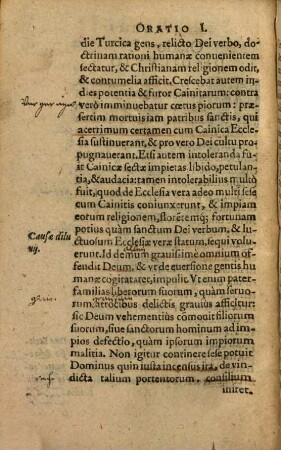 ORATIO I.
die Turcica gens, relicto Dei verbo, do-
ctrinam rationi humanæ convenientem
sectatur, & Christianam religionem odit,
& contumelia afficit. Crescebat autem in
dies potentia & furor Cainitarum: contra
verò imminuebatur cœtus piorum: præ-
sertim mortuis iam patribus sanctis, qui
acerrimum certamen cum Cainica Eccle
sia sustinuerant, & pro vero Dei cultu pro
pugnauerant. Etsi autem intoleranda fu-
it Cainicæ sectæ impietas, libido, petulan
tia, & audacia: tamen intolerabilius multò
fuit, quod de Ecclesia vera adeo multi sese
cum Cainitis coniunxerunt, & impiam
eorum religionem, florētemq; fortunam
potius quàm sanctum Dei verbum, & lu-
ctuosum Ecclesiæ veræ statum, sequi volu-
erunt. Id demum grauissime omnium of-
fendit Deum, & vt de euersione gentis hu
manæ cogitaret, impulit. Vt enim pater-
familias liberorum suorum, quàm seruo-
rum, atrocibus delictis grauius afficitur:
sic Deum vehementiùs cōmouit filiorum
suorum, siue sanctorum hominum ad im-
pios defectio, quàm ipsorum impiorum
malitia. Non igitur continere sese potuit
Dominus quin iusta incensus ira, de vin-
dicta talium portentorum, consilium
iniret.
Causæ dilu
uij.